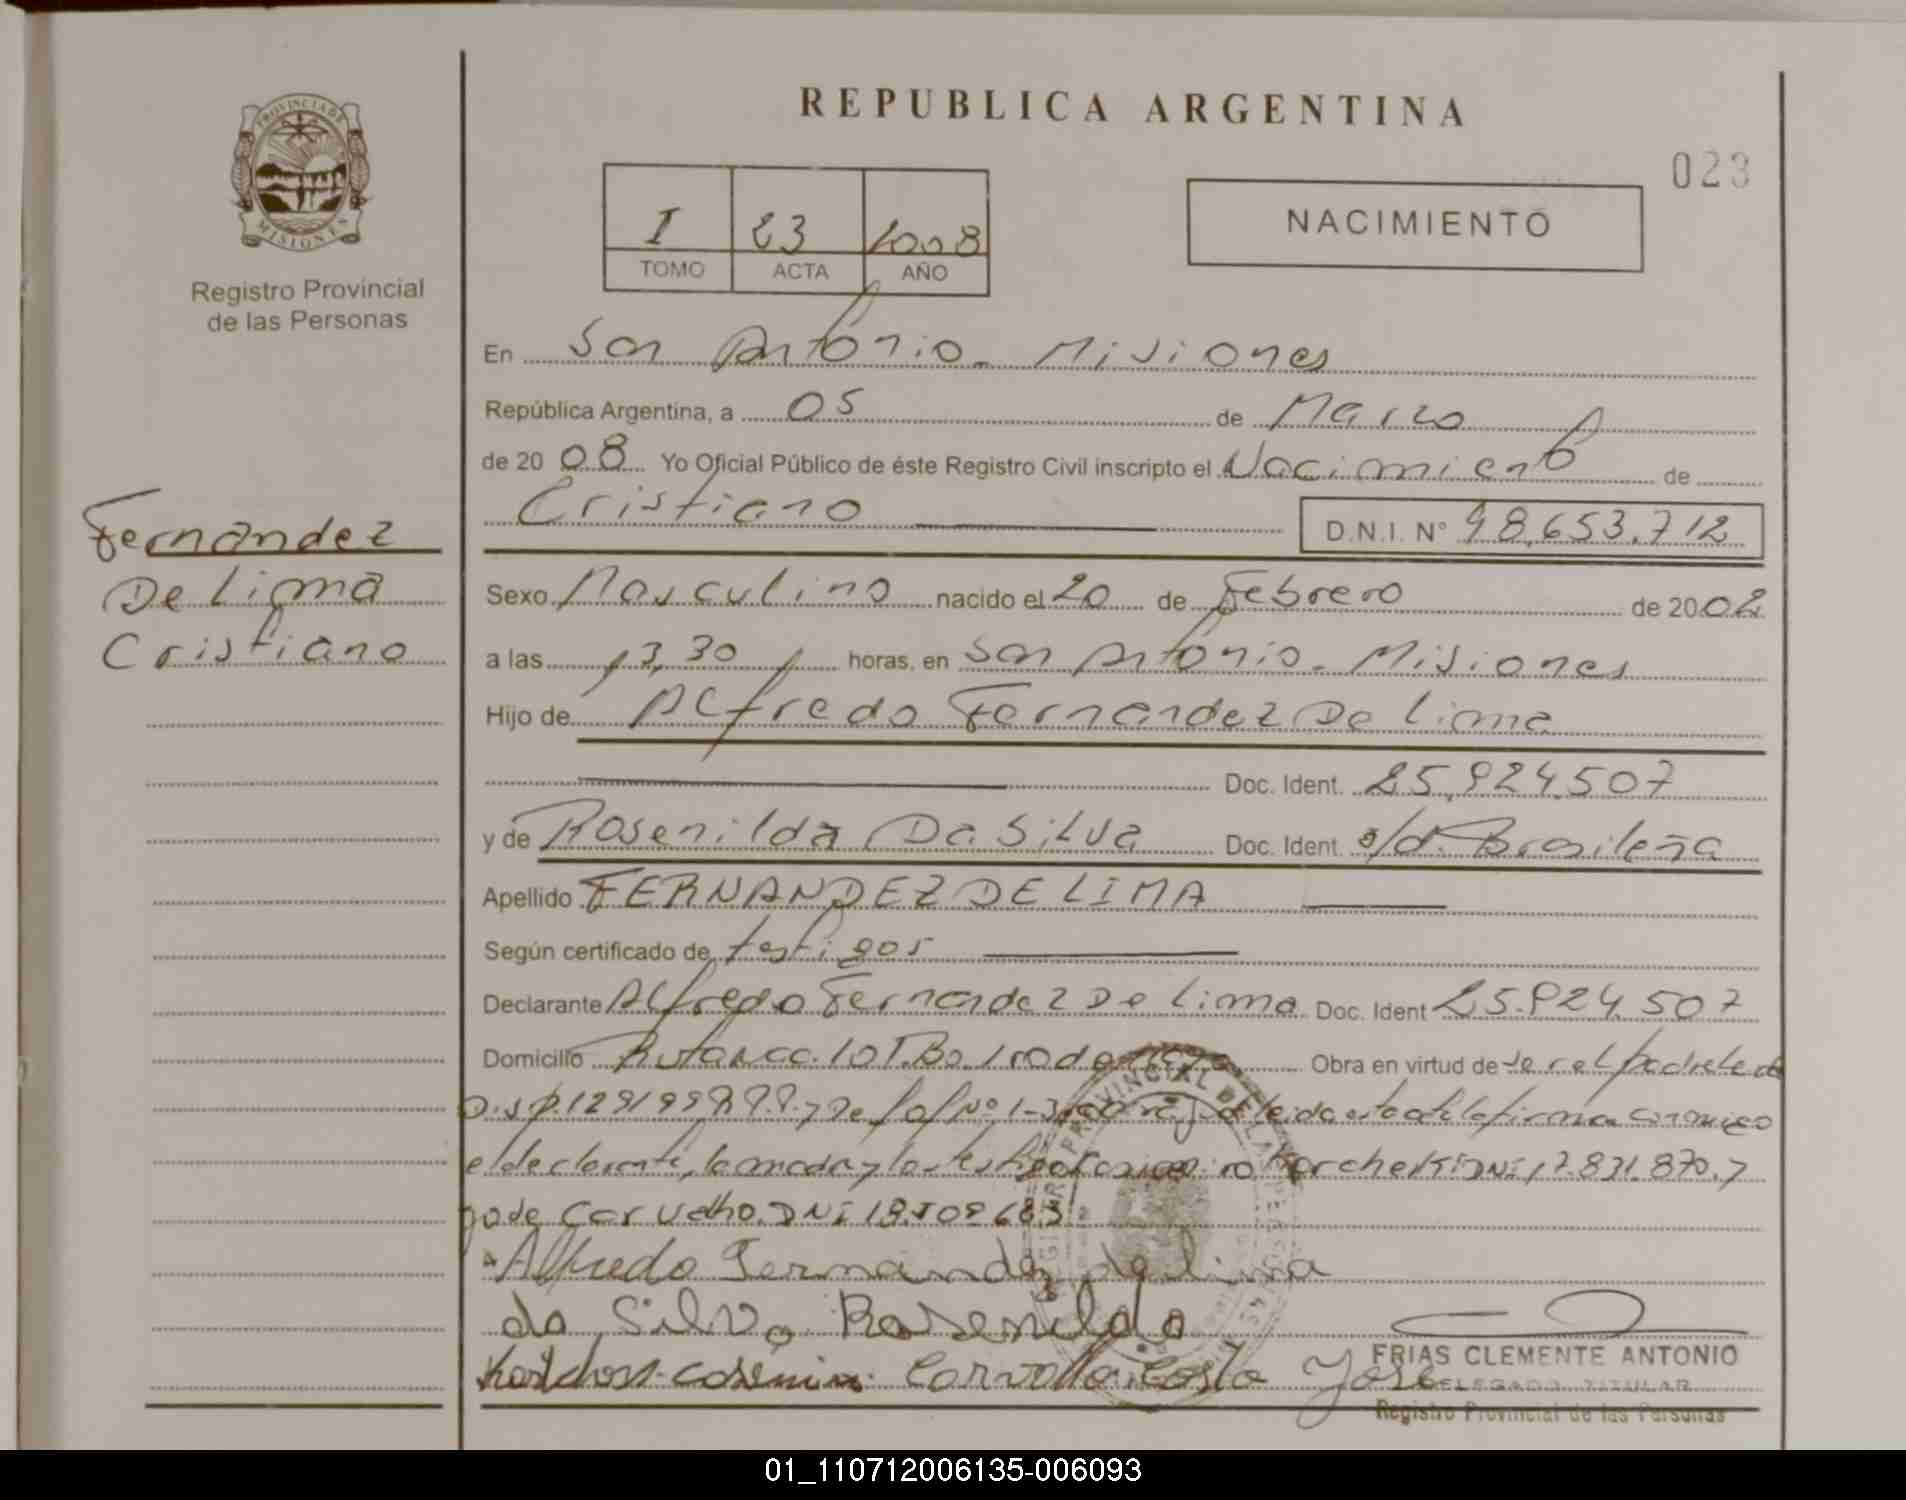 REPUBLICA ARGENTINA
023
PROVINCIA DE
MISIONES
Registro Provincial
de las Personas
I 23 2008
TOMO ACTA AÑO
NACIMIENTO
En San Antonio - Misiones
República Argentina, a 05 de Marzo
de 2008 Yo Oficial Público de éste Registro Civil inscripto el Nacimiento de
Cristiano D.N.I. N° 48.653.712
Fernandez
De Lima
Cristiano
Sexo Masculino nacido el 20 de Febrero de 2002
a las 13,30 horas, en San Antonio - Misiones
Hijo de Alfredo Fernandez De Lima
Doc. Ident. 25.924.507
y de Rosenilda Da Silva Doc. Ident. s/d. Brasileña
Apellido FERNANDEZ DE LIMA
Según certificado de testigos
Declarante Alfredo Fernandez De Lima Doc. Ident 25.924.507
Domicilio Obra en virtud de ser el padre
leida esta acta la firma conmigo
el declarante, la madre y los testigos DNI 17.831.870. y
Jose Carvalho. DNI
Alfredo Fernandez de lima
da Silva Rosenilda
Carvalho Costa Jose
FRIAS CLEMENTE ANTONIO
DELEGADO TITULAR
Registro Provincial de las Personas
01_110712006135-006093